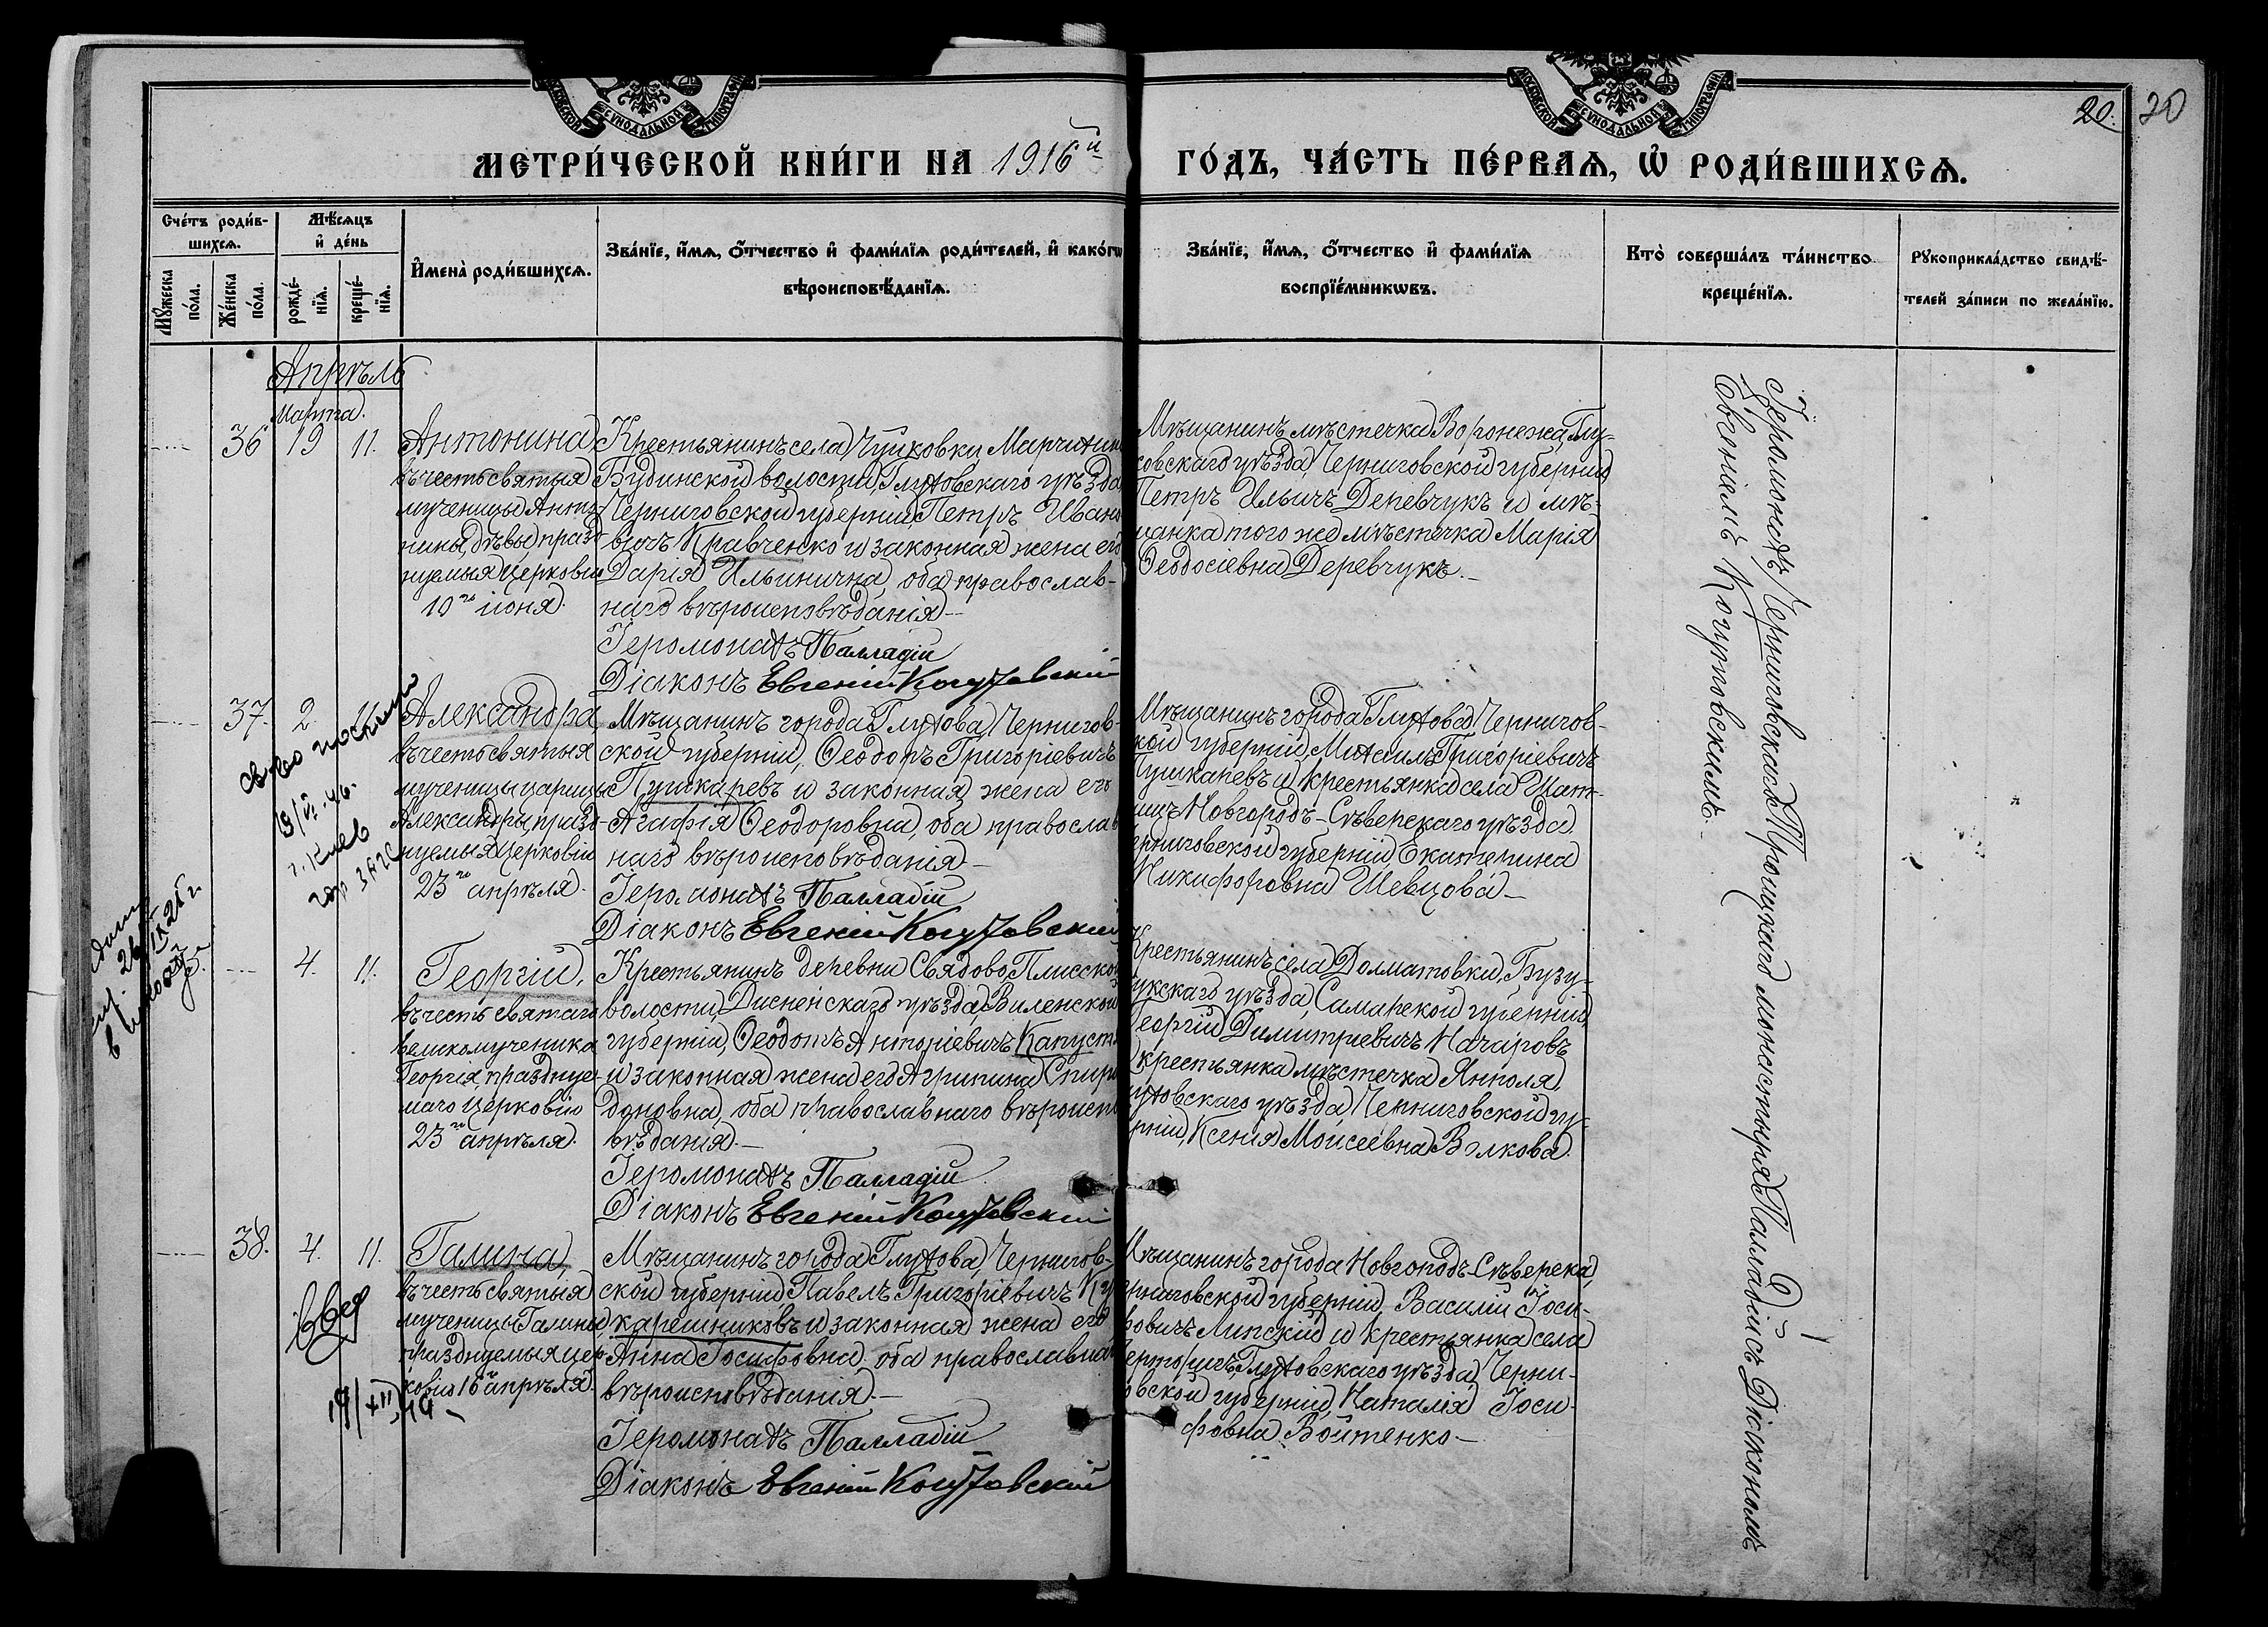 МОСКОВСКОЙ СѴНОДАЛЬНОЙ ТИПОГРАФІИ
МОСКОВСКОЙ СѴНОДАЛЬНОЙ ТИПОГРАФІИ
20. 20
МЕТРИ́ЧЕСКОЙ КНИ́ГИ НА 1916й ГО́ДЪ, ЧА́СТЬ ПЕ́РВАѦ, Ѡ҆ РОДИ́ВШИХСѦ.
Сче́тъ роди́в-
шихсѧ.
Мꙋ́жеска
по́ла.
Же́нска
по́ла.
Мѣ́сѧцъ
и҆ де́нь
рожде́-
нїѧ.
креще́-
нїѧ.
И҆мена̀ роди́вшихсѧ.
Зва́нїе, и҆́мѧ, ѻ҆́тчество и҆ фами́лїѧ роди́телей, и҆ како́гѡ
вѣроисповѣ́данїѧ.
Зва́нїе, и҆́мѧ, ѻ҆́тчество и҆ фами́лїѧ
воспрїе́мникѡвъ.
Кто̀ соверша́лъ та́инство
креще́нїѧ.
Рꙋкоприкла́дство свидѣ́-
телей за́писи по жела́нїю.
Апрѣль
Марта
36 19 11.
Антонина
въ честь святыя
мученицы Анто-
нины дѣвы празд-
нуемыя Церковію
10го іюня.
Крестьянинъ села Чуйковки Марчихин
Будинской волости, Глуховскаго уѣзда
Черниговской губерніи Петръ Ивано
вичъ Кравченко и законная жена его
Дарія Ильинична, оба православ-
наго вѣроисповѣданія.—
Іеромонахъ Палладій
Діаконъ Евгеній
Мѣщанинъ мѣстечка Воронежа, Глу-
ховскаго уѣзда, Черниговской губерніи
Петръ Ильичъ Деревчукъ и мѣ-
щанка того же мѣстечка Марія
Ѳеодосіевна Деревчукъ.—
37. 2. 11.
Александра,
въ честь святыя
мученицы царицы
Александры, празд-
нуемыя Церковію
23го апрѣля.
Мѣщанинъ города Глухова, Чернигов-
ской губерніи, Ѳеодоръ Григоріевичъ
Пушкаревъ и законная жена его
Агафія Ѳеодоровна, оба православ
наго вѣроисповѣданія.—
Іеромонахъ Палладій
Діаконъ Евгеній
Мѣщанинъ города Глухова Чернигов-
кой губерніи, Михаилъ Григоріевичъ
Пушкаревъ и крестьянка села Шат-
ищъ Новгородъ-Сѣверскаго уѣзда,
ерниговской губерніи Екатерина
Никифоровна Шевцова.—
19/VI.46.
г. Киев
гор ЗАГС
4. 11.
Георгій,
въ честь святаго
великомученика
Георгія, празднуе-
маго Церковію
23го апрѣля.
Крестьянинъ деревни Свядово, Плисской
волости, Дисненскаго уѣзда, Виленской
губерніи, Ѳеодотъ Анторіевичъ Капуст
и законная жена его Агрипина Спири
доновна, оба православнаго вѣроиспо
вѣданія.—
Іеромонахъ Палладій
Діаконъ Евгеній
Крестьянинъ села Долматовки, Бузу-
укскаго уѣзда, Самарской губерніи,
Георгій Димитріевичъ Начаровъ
крестьянка мѣстечка Янполя,
уховскаго уѣзда, Черниговской гу-
рніи, Ксенія Моисеевна Волкова.
38. 4. 11.
Галина,
въ честь святыя
мученицы Галины,
празднуемыя Цер-
ковію 16го апрѣля.
Мѣщанинъ города Глухова, Чернигов-
ской губерніи, Павелъ Григоріевичъ Ку
карешниковъ и законная жена его
Анна Іосифовна, оба православнаго
вѣроисповѣданія.—
Іеромонахъ Палладій
Діаконъ Евгеній
Мѣщанинъ города Новгородъ-Сѣверска,
ерниговской губерніи, Василій Іоси-
фовичъ Липскій и крестьянка села
Глуховскаго уѣзда, Черни-
овской губерніи, Наталія Іоси-
фовна Войтенко.—
Іеромонахъ Черниговскаго Троицкаго монастыря Палладій съ Діакономъ